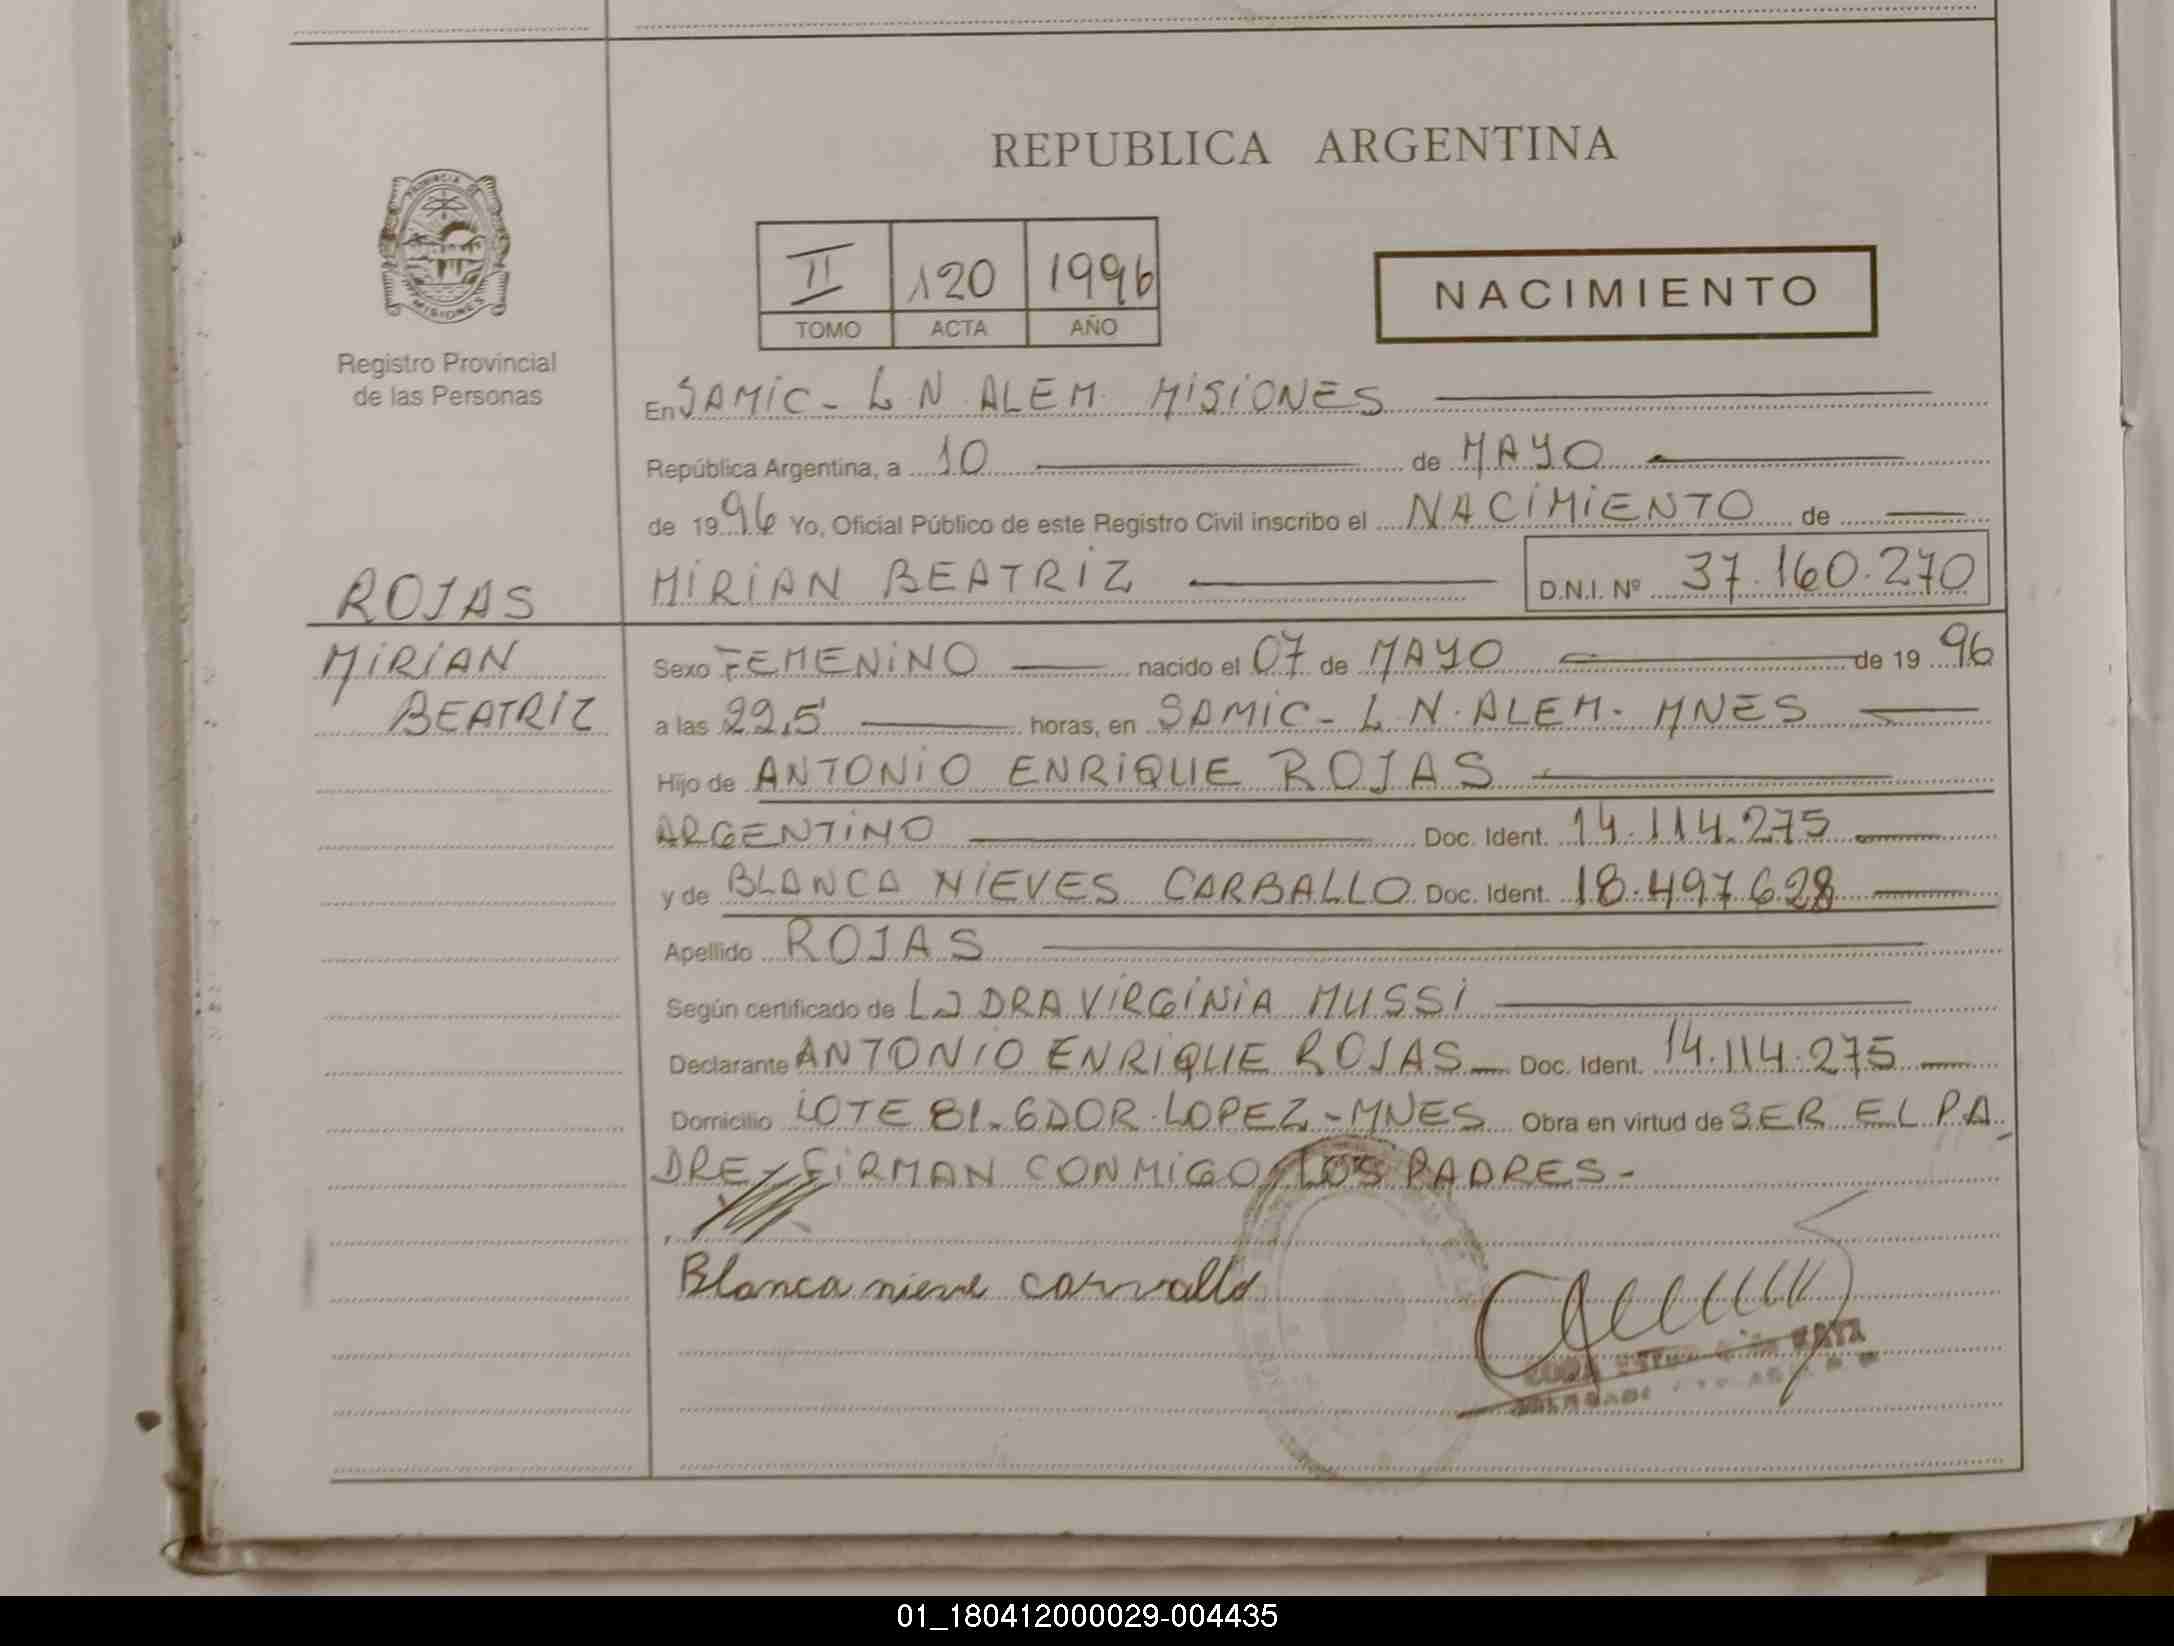 REPUBLICA ARGENTINA
PROVINCIA DE MISIONES
Registro Provincial
de las Personas
II 120 1996
TOMO ACTA AÑO
NACIMIENTO
En SAMIC - L.N. ALEM. MISIONES
República Argentina, a 10 de MAYO
de 1996 Yo, Oficial Público de este Registro Civil inscribo el NACIMIENTO de
MIRIAN BEATRIZ D.N.I. Nº 37.160.270
ROJAS
MIRIAN
BEATRIZ
Sexo FEMENINO nacido el 07 de MAYO de 1996
a las 22,5' horas, en SAMIC - L.N. ALEM - MNES
Hijo de ANTONIO ENRIQUE ROJAS
ARGENTINO Doc. Ident. 14.114.275
y de BLANCA NIEVES CARBALLO Doc. Ident. 18.497.628
Apellido ROJAS
Según certificado de LA DRA VIRGINIA MUSSI
Declarante ANTONIO ENRIQUE ROJAS - Doc. Ident. 14.114.275
Domicilio LOTE 81. GDOR. LOPEZ - MNES Obra en virtud de SER EL PA
DRE - FIRMAN CONMIGO LOS PADRES -
Blanca nieve carvallo
01_180412000029-004435